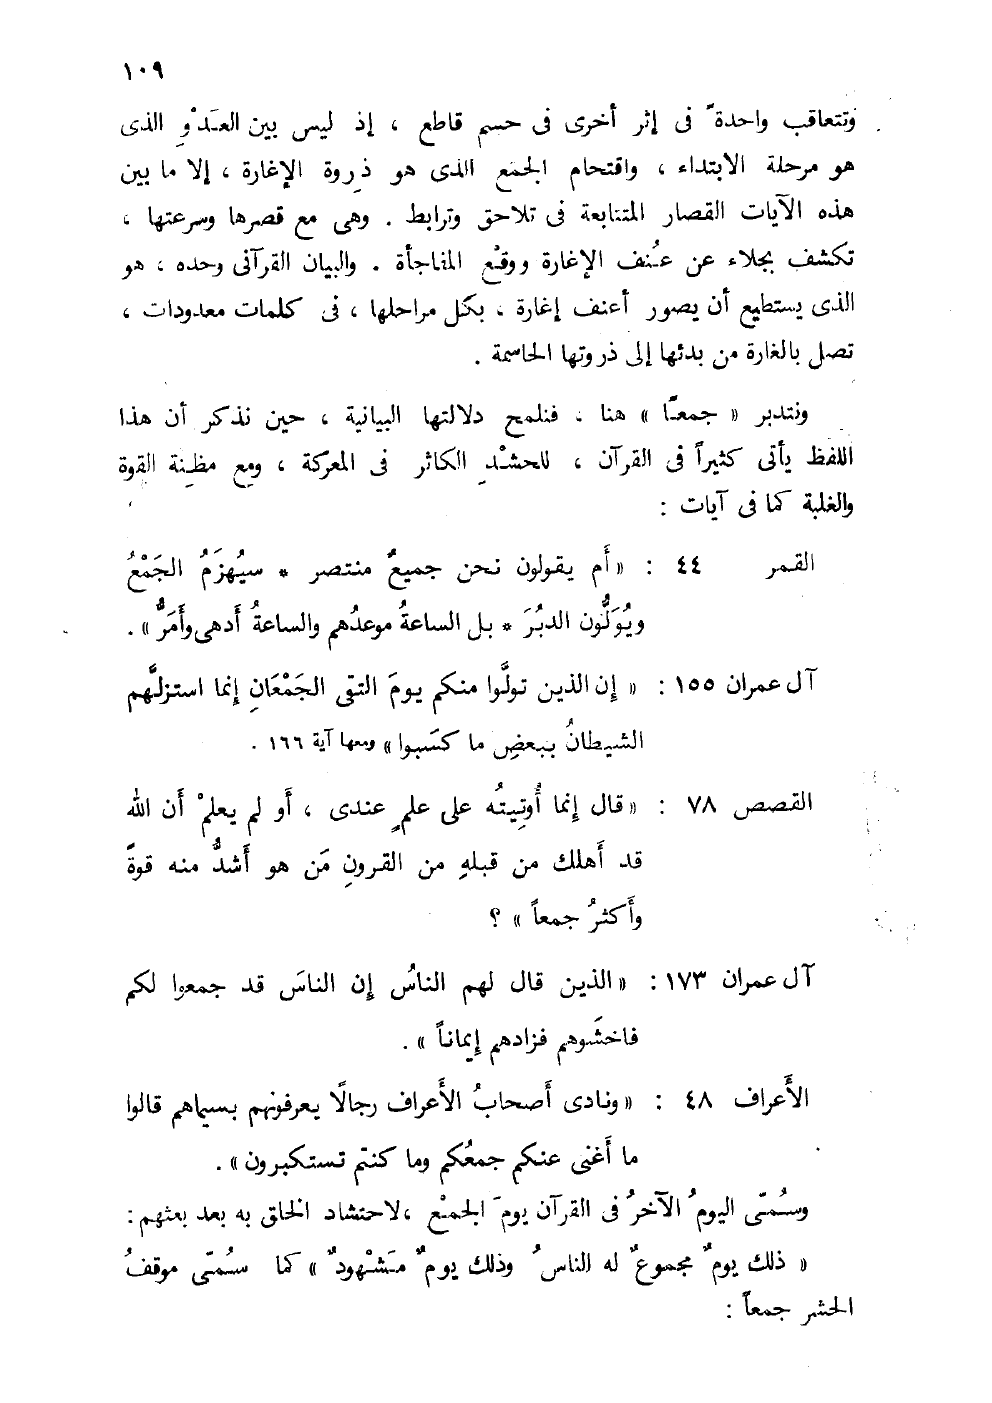 ١٠٩
وتتعاقب واحدةً فى إثر أخرى فى حسم قاطع ، إذ ليس بين العَدْوِ الذى
هو مرحلة الابتداء ، واقتحام الجمْع الذى هو ذِروة الإغارة ، إلا ما بين
هذه الآيات القصار المتتابعة فى تلاحق وترابط . وهى مع قصرها وسرعتها ،
تكشف بجلاء عن عُنف الإغارة ووقْع المفاجأة . والبيان القرآنى وحده ، هو
الذى يستطيع أن يصور أعنف إغارة ، بكل مراحلها ، فى كلمات معدودات ،
تصل بالغارة من بدئها إلى ذروتها الحاسمة .
ونتدبر « جمعًا » هنا ، فنلمح دلالتها البيانية ، حين نذكر أن هذا
اللفظ يأتى كثيراً فى القرآن ، للحشْدِ الكاثر فى المعركة ، ومع مظِنة القوة
والغلبة كما فى آيات :
القمر ٤٤ : « أَم يقولون نحن جميعٌ منتصر * سيُهزَمُ الجَمْعُ
ويُوَلُّون الدبُرَ * بل الساعةُ موعدُهم والساعةُ أَدهى وأَمَرُّ » .
آل عمران ١٥٥ : « إن الذين تولَّوا منكم يومَ التقى الجَمْعَانِ إنما استزلَّهم
الشيطانُ ببعضِ ما كسَبوا » ومعها آية ١٦٦ .
القصص ٧٨ : « قال إنما أُوتِيتُه على علمٍ عندى ، أَو لم يعلمْ أَن الله
قد أَهلك من قبلهِ من القرونِ مَن هو أَشدُّ منه قوةً
وأَكثرُ جمعاً » ؟
آل عمران ١٧٣ : « الذين قال لهم الناسُ إن الناسَ قد جمعوا لكم
فاخشَوهم فزادهم إيماناً » .
الأَعراف ٤٨ : « ونادى أَصحابُ الأَعراف رجالًا يعرفونهم بسيماهم قالوا
ما أَغنى عنكم جمعُكم وما كنتم تستكبرون » .
وسُمّى اليومُ الآخرُ فى القرآن يومَ الجمعْ ، لاحتشاد الخلق به بعد بعثهم :
« ذلك يومٌ مجموعٌ له الناسُ وذلك يومٌ مَشْهودٌ » كما سُمّى موقفُ
الحشر جمعاً :